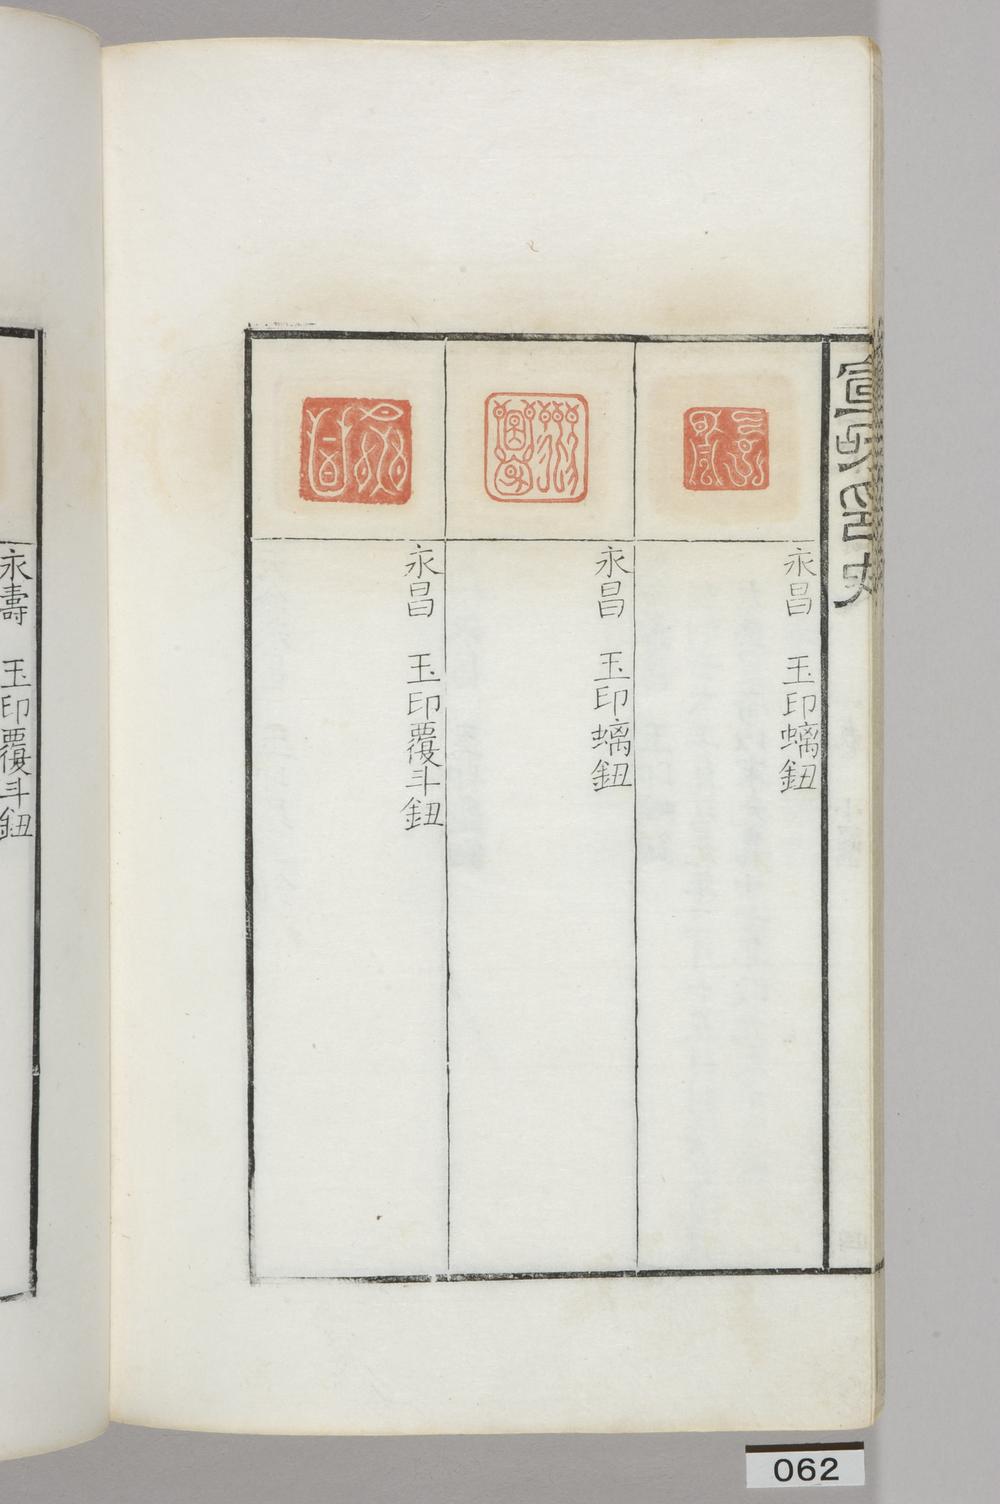 宣和印史
永昌　玉印螭鈕
永昌　玉印螭鈕
永昌　玉印覆斗鈕
永壽　玉印覆斗鈕
062